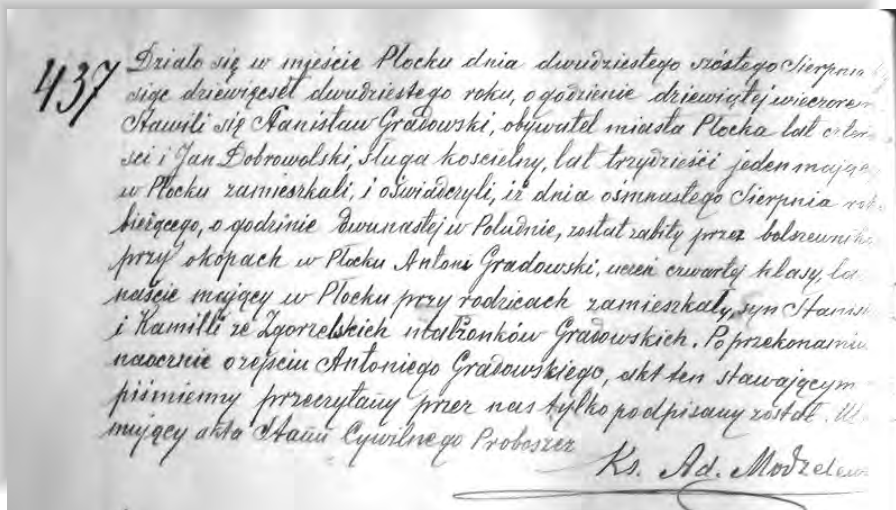 437
Działo się w mjeście Płocku dnia dwudziestego szóstego Sierpnia
siąc dziewięćset dwudziestego roku, o godzienie dziewiątej wieczorem
Stawili się Stanisław Gradowski, obywatel miasta Płocka lat czter
ści i Jan Dobrowolski, sługa kościelny, lat trzydzieści jeden mający
w Płocku zamieszkali, i oświadczyli, iż dnia ośmnastego Sierpnia rok
bieżącego, o godzinie dwunastej w Południe, został zabity przez bolszewnik
przy okopach w Płocku Antoni Gradowski, uczeń czwartej klasy, la
naście mający w Płocku przy rodzicach zamieszkały, syn Stanis
i Kamilli ze Zgorzelskich małżonków Gradowskich. Po przekonaniu
naocznie o zejściu Antoniego Gradowskiego, akt ten stawającym
piśmienny przeczytany przez nas tylko podpisany został.
mujący akta Stanu Cywilnego Proboszcz
Ks. Ad. Modzelew